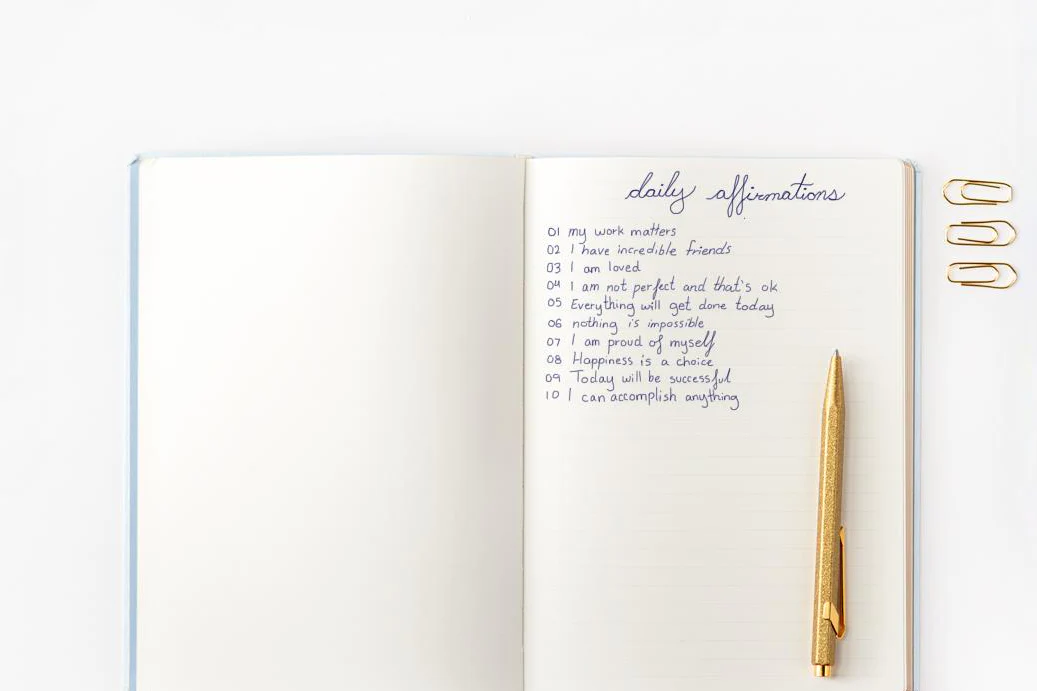 daily affirmations
01 my work matters
02 I have incredible friends
03 I am loved
04 I am not perfect and that's ok
05 Everything will get done today
06 nothing is impossible
07 I am proud of myself
08 Happiness is a choice
09 Today will be successful
10 I can accomplish anything